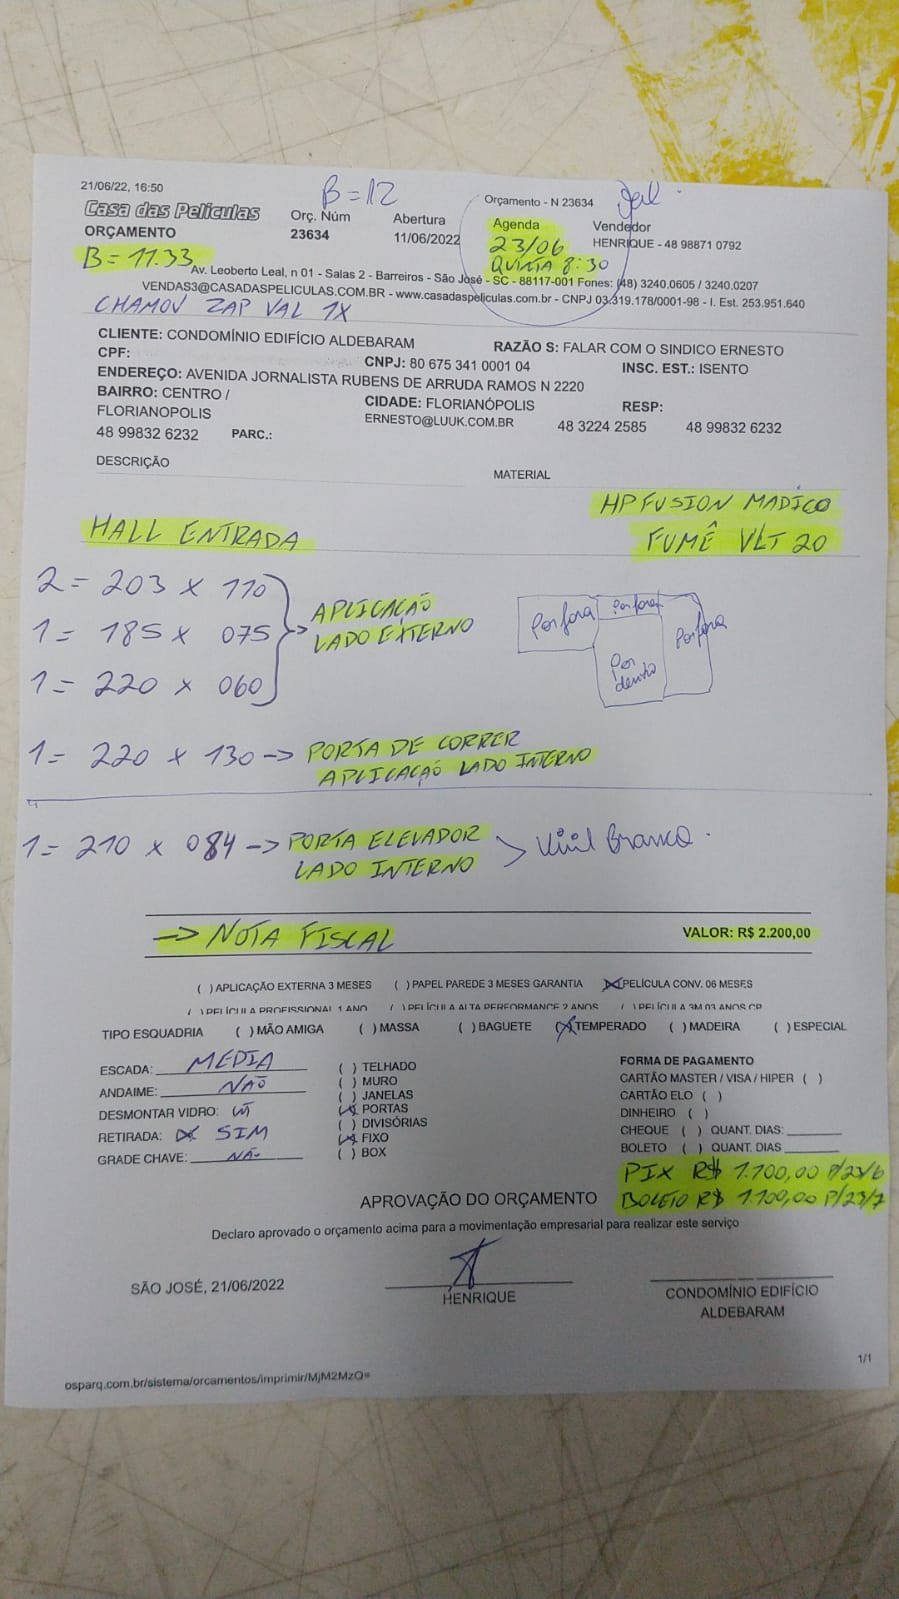 21/06/22, 16:50
B = 12
Orçamento - N 23634
Casa das Películas
Orç. Núm
Abertura
Agenda
Vendedor
ORÇAMENTO
23634
11/06/2022
23/06
HENRIQUE - 48 98871 0792
B = 11.33
QUINTA 8:30
Av. Leoberto Leal, n 01 - Salas 2 - Barreiros - São José - SC - 88117-001 Fones: (48) 3240.0605 / 3240.0207
VENDAS3@CASADASPELICULAS.COM.BR - www.casadaspeliculas.com.br - CNPJ 03.319.178/0001-98 - I. Est. 253.951.640
CHAMOU ZAP VAL 1X
CLIENTE: CONDOMÍNIO EDIFÍCIO ALDEBARAM
RAZÃO S: FALAR COM O SINDICO ERNESTO
CPF:
CNPJ: 80 675 341 0001 04
INSC. EST.: ISENTO
ENDEREÇO: AVENIDA JORNALISTA RUBENS DE ARRUDA RAMOS N 2220
BAIRRO: CENTRO /
CIDADE: FLORIANÓPOLIS
RESP:
FLORIANOPOLIS
ERNESTO@LUUK.COM.BR
48 3224 2585
48 99832 6232
48 99832 6232
PARC.:
DESCRIÇÃO
MATERIAL
HP FUSION MADICO
HALL ENTRADA
FUMÊ VLT 20
2 = 203 x 110
1 = 185 x 075
1 = 220 x 060
APLICAÇÃO
LADO EXTERNO
Por fora
Por fora
Por fora
Por
dentro
1 = 220 x 130 -> PORTA DE CORRER
APLICAÇÃO LADO INTERNO
1 = 210 x 084 -> PORTA ELEVADOR
LADO INTERNO
> Vinil Branco.
-> NOTA FISCAL
VALOR: R$ 2.200,00
( ) APLICAÇÃO EXTERNA 3 MESES
( ) PAPEL PAREDE 3 MESES GARANTIA
(X) PELÍCULA CONV. 06 MESES
( ) PELÍCULA PROFISSIONAL 1 ANO
( ) PELÍCULA ALTA PERFORMANCE 2 ANOS
( ) PELÍCULA 3M 03 ANOS CR
TIPO ESQUADRIA ( ) MÃO AMIGA ( ) MASSA ( ) BAGUETE (X) TEMPERADO ( ) MADEIRA ( ) ESPECIAL
ESCADA: MEDIA
ANDAIME: NÃO
DESMONTAR VIDRO:
RETIRADA: X SIM
GRADE CHAVE: NÃO
( ) TELHADO
( ) MURO
( ) JANELAS
(X) PORTAS
( ) DIVISÓRIAS
(X) FIXO
( ) BOX
FORMA DE PAGAMENTO
CARTÃO MASTER / VISA / HIPER ( )
CARTÃO ELO ( )
DINHEIRO ( )
CHEQUE ( ) QUANT. DIAS:
BOLETO ( ) QUANT. DIAS
PIX R$ 1.100,00 P/23/6
BOLETO R$ 1.100,00 P/23/7
APROVAÇÃO DO ORÇAMENTO
Declaro aprovado o orçamento acima para a movimentação empresarial para realizar este serviço
SÃO JOSÉ, 21/06/2022
HENRIQUE
CONDOMÍNIO EDIFÍCIO
ALDEBARAM
1/1
osparq.com.br/sistema/orcamentos/imprimir/MjM2MzQ=